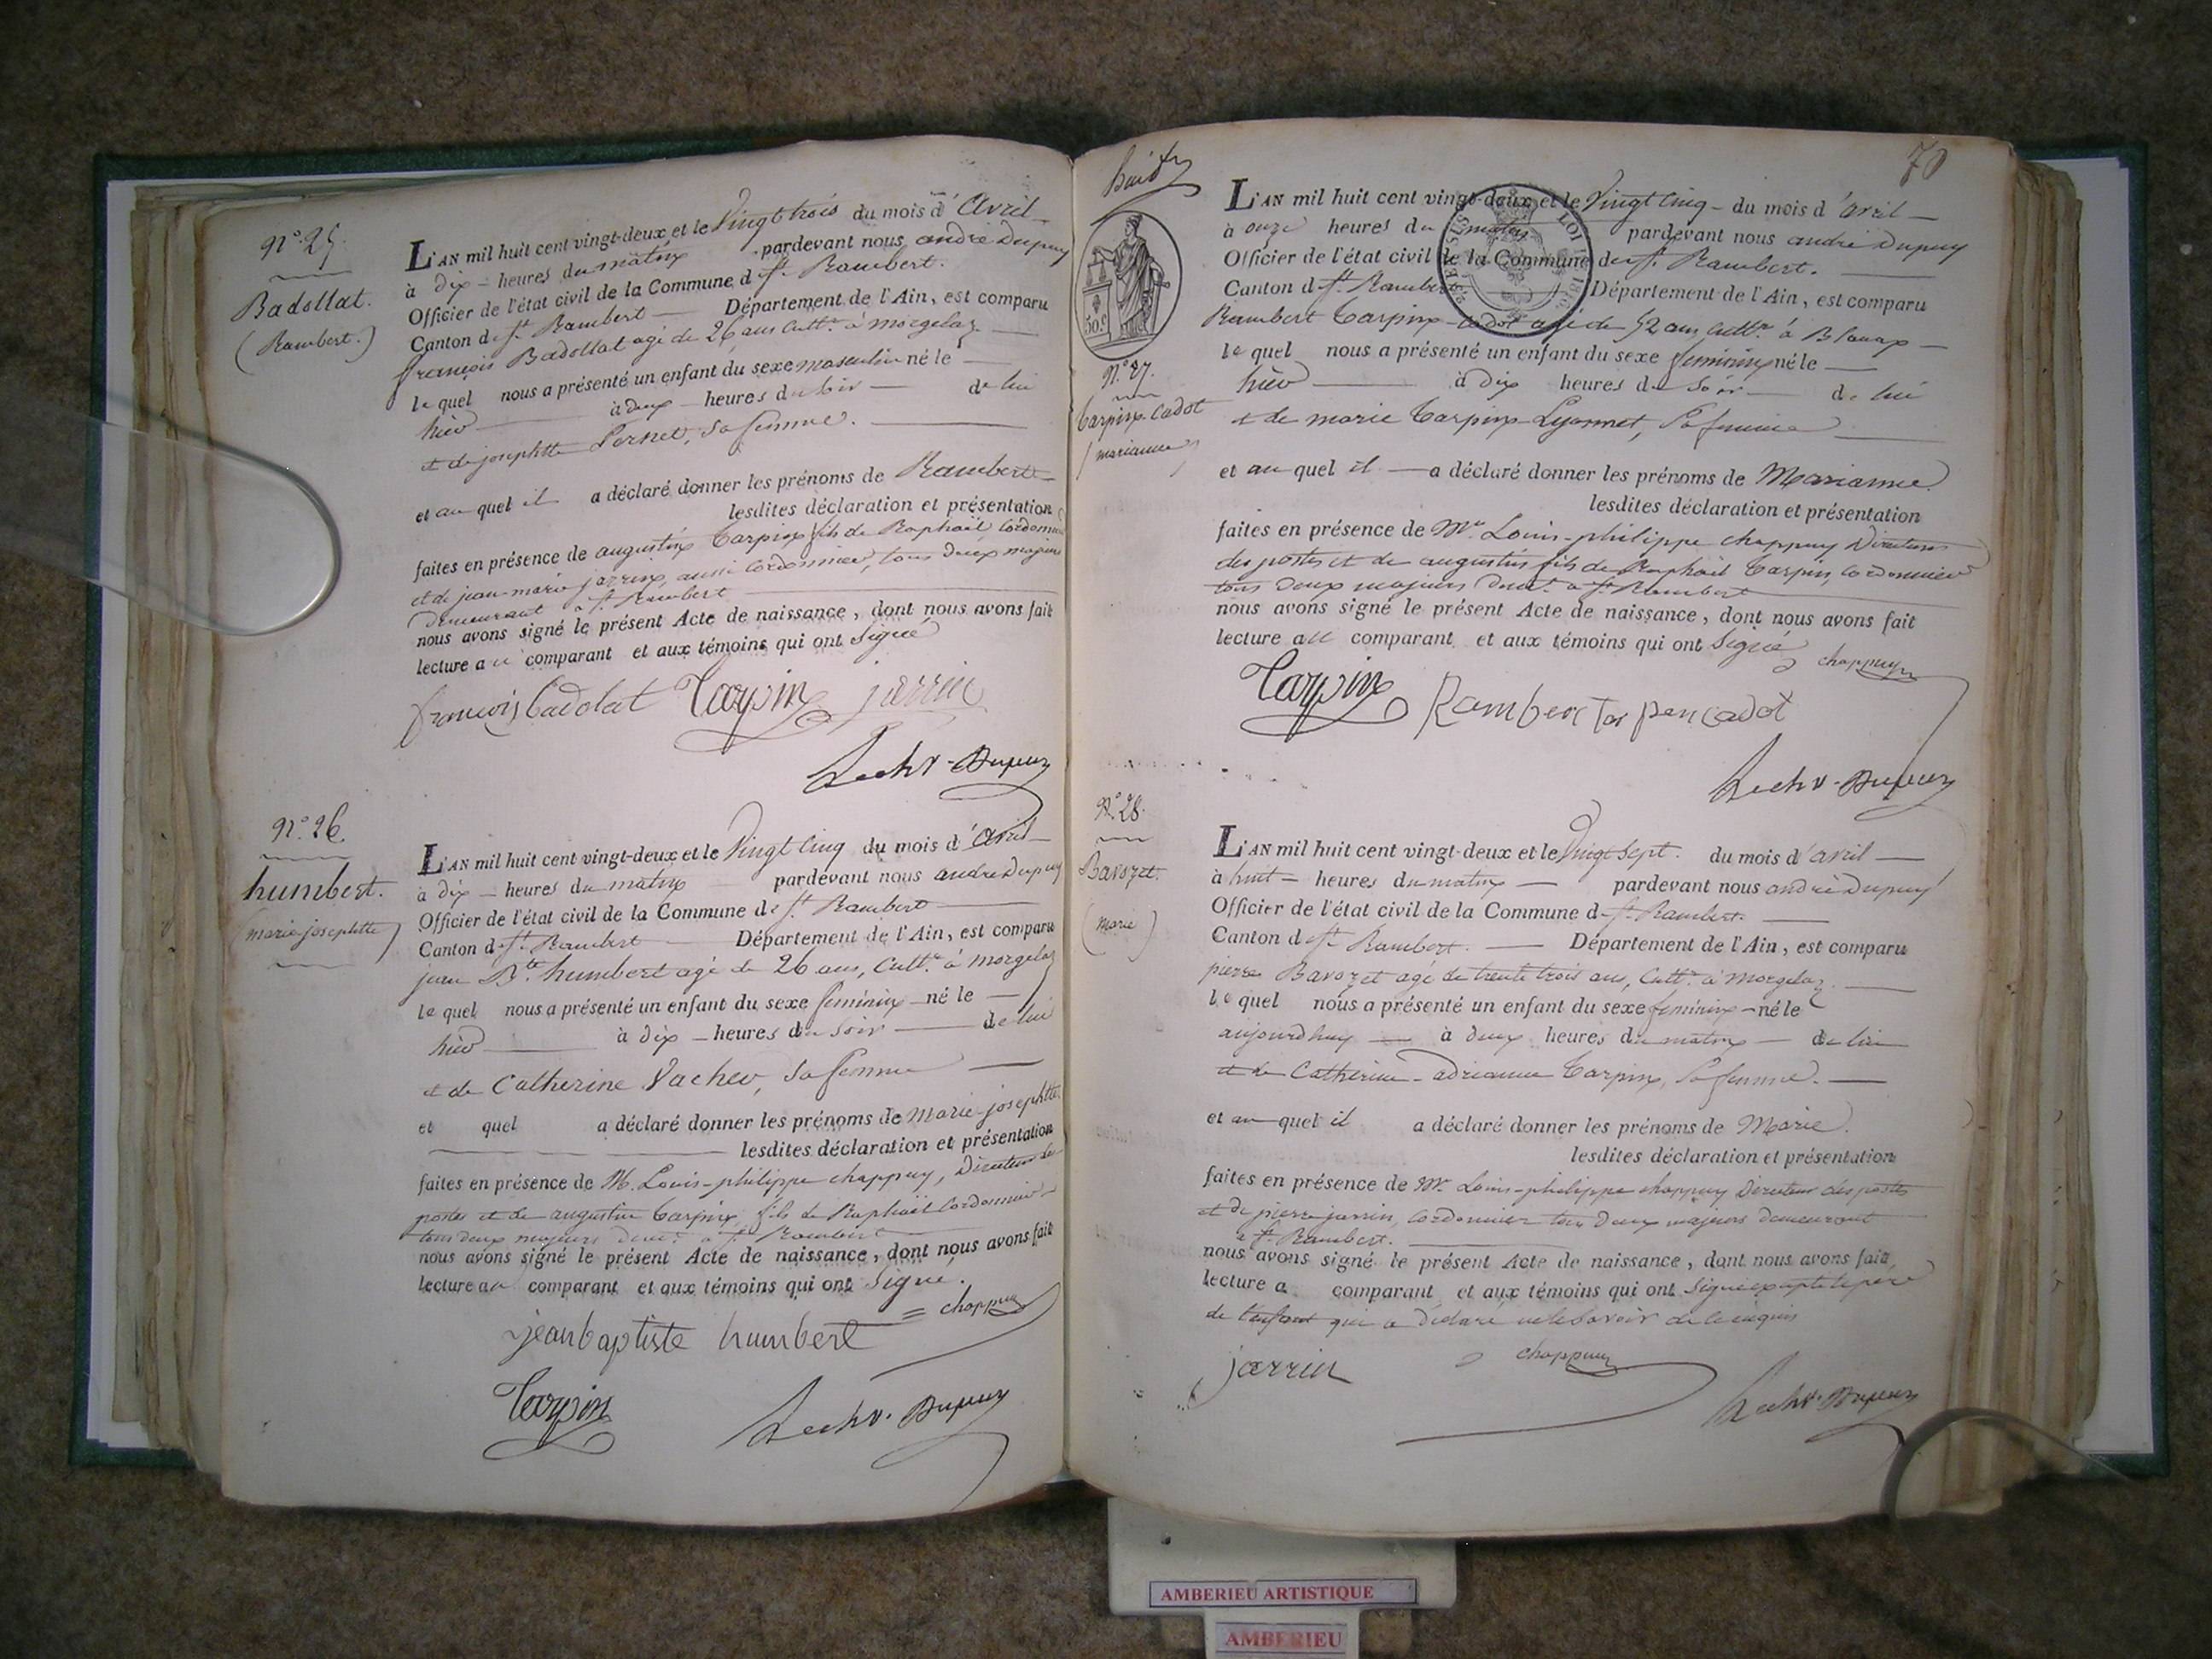 N.° 25.
Badollat.
(Rambert.)
L'AN mil huit cent vingt-deux et le Vingt trois du mois d'Avril
à dix heures du matin pardevant nous andré Dupuy
Officier de l'état civil de la Commune de St. Rambert.
Canton de St. Rambert Département de l'Ain, est comparu
françois Badollat agé de 26 ans Cultr. à Morgelaz
lequel nous a présenté un enfant du sexe masculin né le
hier à deux heures du soir de lui
et de josephtte Pernet, sa femme.
et au quel il a déclaré donner les prénoms de Rambert
lesdites déclaration et présentation
faites en présence de augustin Tarpin fils de Raphaël, Cordonnier
et de jean-marie jarrin, aussi Cordonnier, tous deux majeurs
demeurant à St. Rambert
nous avons signé le présent Acte de naissance, dont nous avons fait
lecture au comparant et aux témoins qui ont signé
françois badolat Tarpin jarrin
Dupuy
N.° 26.
humbert.
(marie josephtte)
L'AN mil huit cent vingt-deux et le Vingt cinq du mois d'avril
à dix heures du matin pardevant nous andré Dupuy
Officier de l'état civil de la Commune de St. Rambert
Canton de St. Rambert Département de l'Ain, est comparu
jean Bte. humbert agé de 26 ans, Cultr. à morgelaz
lequel nous a présenté un enfant du sexe féminin né le
hier à dix heures du soir de lui
et de Catherine Vacher, sa femme
et quel a déclaré donner les prénoms de Marie-josephtte.
lesdites déclaration et présentation
faites en présence de M. Louis-philippe chappuy, Directeur des
postes et de augustin Tarpin, fils de Raphaël Cordonnier
tous deux majeurs demt. à St. Rambert
nous avons signé le présent Acte de naissance, dont nous avons fait
lecture au comparant et aux témoins qui ont signé.
chappuy
jeanbaptiste humbert
Tarpin Dupuy
70
50 c
N.° 27.
Tarpin-Cadot
(marianne)
L'AN mil huit cent vingt-deux et le Vingt cinq du mois d'avril
à onze heures du matin pardevant nous andré Dupuy
Officier de l'état civil de la Commune de St. Rambert.
Canton de St. Rambert Département de l'Ain, est comparu
Rambert Tarpin-Cadot agé de 52 ans Cultr. à Blanaz
lequel nous a présenté un enfant du sexe féminin né le
hier à dix heures du soir de lui
et de marie Tarpin-Lyonnet, sa femme
et au quel il a déclaré donner les prénoms de Marianne.
lesdites déclaration et présentation
faites en présence de Mr. Louis-philippe chappuy Directeur
des postes et de augustin fils de Raphaël Tarpin, Cordonnier
tous deux majeurs demt. à St. Rambert
nous avons signé le présent Acte de naissance, dont nous avons fait
lecture au comparant et aux témoins qui ont signé
chappuy
Tarpin Rambert Tarpen Cadot
Dupuy
N.° 28.
Bavozet.
(marie)
L'AN mil huit cent vingt-deux et le Vingt Sept. du mois d'avril
à huit heures du matin pardevant nous andré Dupuy
Officier de l'état civil de la Commune de St. Rambert.
Canton de St. Rambert. Département de l'Ain, est comparu
pierre Bavozet agé de trente trois ans, Cultr. à Morgelaz.
lequel nous a présenté un enfant du sexe féminin né le
aujourdhuy à deux heures du matin de lui
et de Catherine-adrianne Tarpin, sa femme.
et au quel il a déclaré donner les prénoms de Marie.
lesdites déclaration et présentation
faites en présence de Mr. Louis-philippe chappuy Directeur des postes
et de pierre jarrin, Cordonnier tous deux majeurs demeurant
à St. Rambert.
nous avons signé le présent Acte de naissance, dont nous avons fait
lecture a comparant et aux témoins qui ont signé excepté le père
de l'enfant qui a déclaré ne le savoir de ce requis
jarrin chappuy
Dupuy
AMBERIEU ARTISTIQUE
AMBERIEU